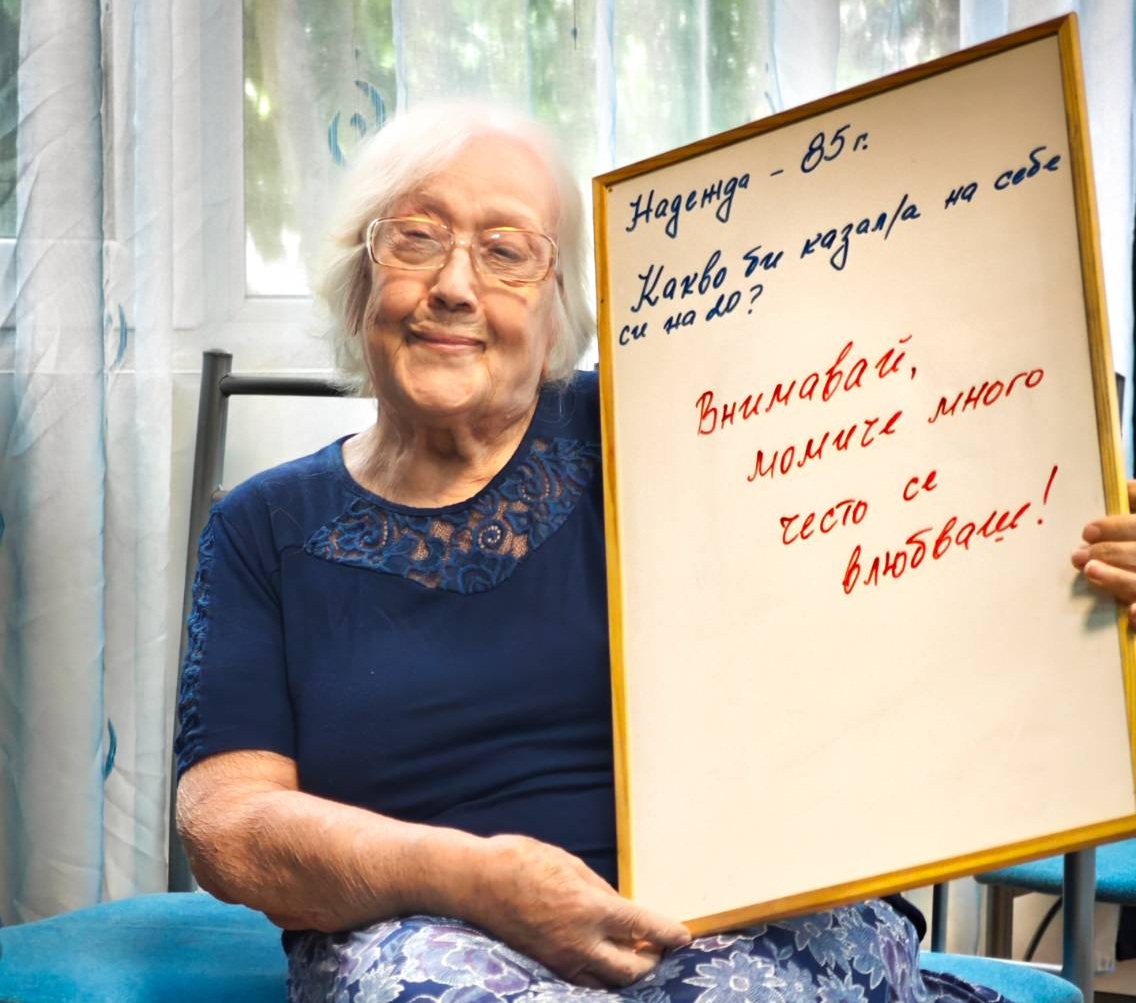 Надежда - 85 г.
Какво би казал/а на себе
си на 20?
Внимавай,
момиче много
често се
влюбваше!